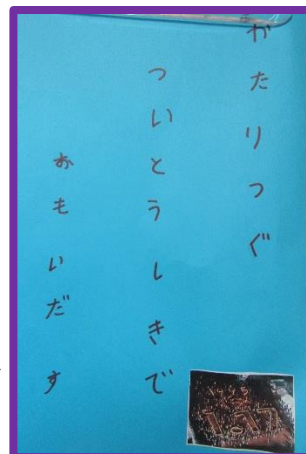 かたりつぐ
ついとうしきで
おもいだす
1.17